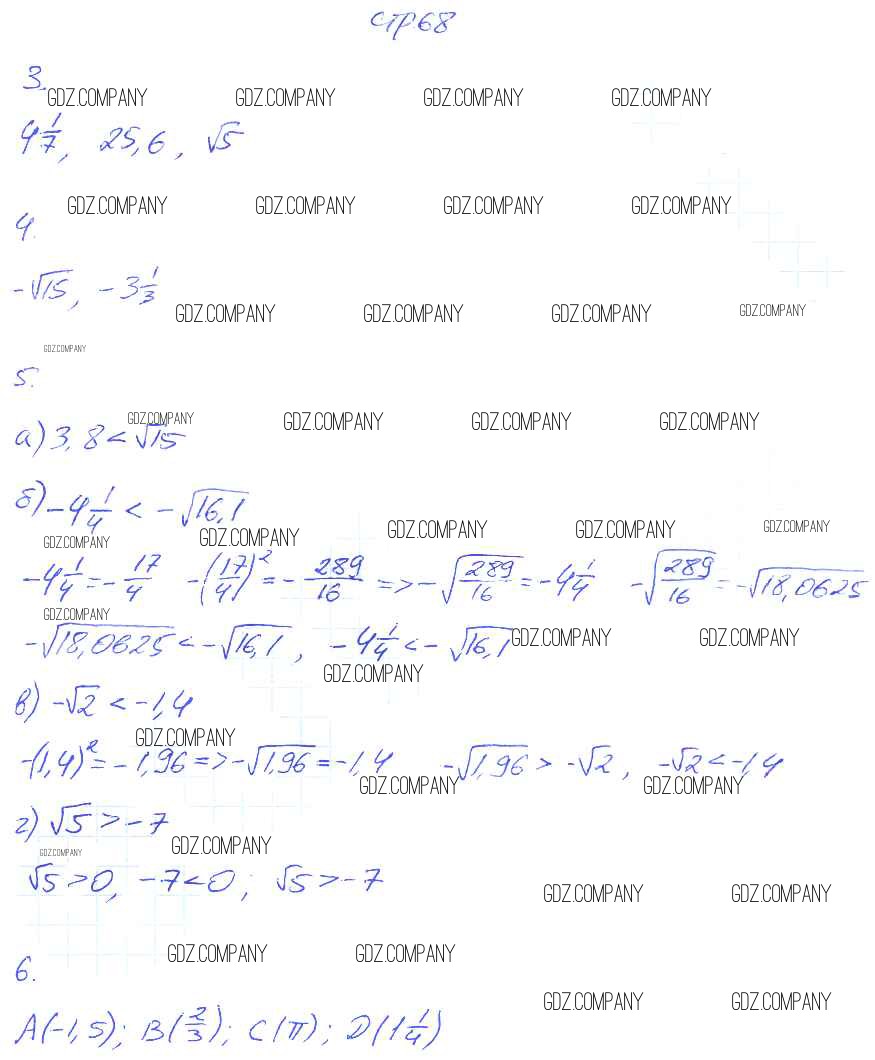 стр 68
3.
GDZ.COMPANY GDZ.COMPANY GDZ.COMPANY GDZ.COMPANY
4 1/7, 25,6, √5
GDZ.COMPANY GDZ.COMPANY GDZ.COMPANY GDZ.COMPANY
4.
-√15, -3 1/3
GDZ.COMPANY GDZ.COMPANY GDZ.COMPANY GDZ.COMPANY
GDZ.COMPANY
5.
GDZ.COMPANY GDZ.COMPANY GDZ.COMPANY GDZ.COMPANY
а) 3,8 < √15
б) -4 1/4 < -√16,1
GDZ.COMPANY GDZ.COMPANY GDZ.COMPANY GDZ.COMPANY GDZ.COMPANY
-4 1/4 = -17/4 -(17/4)² = -289/16 => -√(289/16) = -4 1/4 -√(289/16) = -√18,0625
GDZ.COMPANY
-√18,0625 < -√16,1, -4 1/4 < -√16,1 GDZ.COMPANY GDZ.COMPANY
GDZ.COMPANY
в) -√2 < -1,4
GDZ.COMPANY
-(1,4)² = -1,96 => -√1,96 = -1,4 -√1,96 > -√2, -√2 < -1,4
GDZ.COMPANY GDZ.COMPANY
г) √5 > -7
GDZ.COMPANY GDZ.COMPANY
√5 > 0, -7 < 0; √5 > -7
GDZ.COMPANY GDZ.COMPANY
GDZ.COMPANY GDZ.COMPANY
6.
GDZ.COMPANY GDZ.COMPANY
A(-1,5); B(2/3); C(π); D(1 1/4)